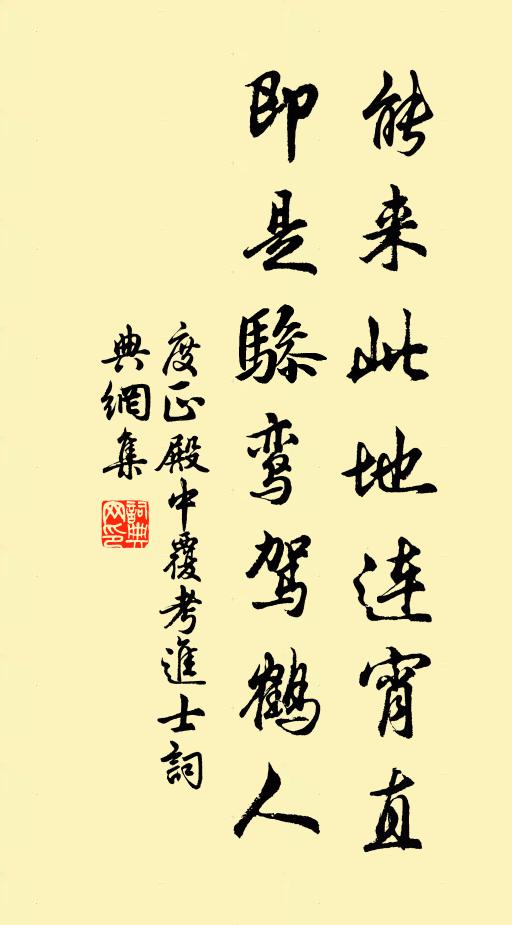 能来此地连宵直
即是骖鸾驾鹤人
度正殿中覆考進士詞
典網集
詞典
网印